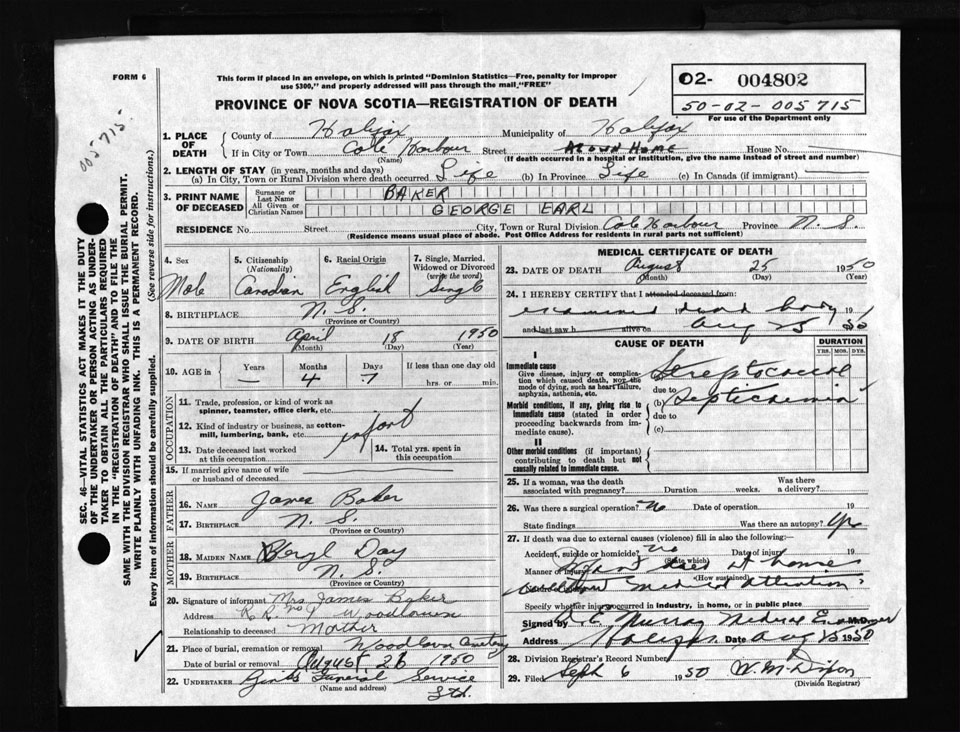 FORM 6
This form if placed in an envelope, on which is printed "Dominion Statistics—Free, penalty for improper
use $300," and properly addressed will pass through the mail, "FREE"
02- 004802
50-02-005715
For use of the Department only
PROVINCE OF NOVA SCOTIA—REGISTRATION OF DEATH
005715
SEC. 46—VITAL STATISTICS ACT MAKES IT THE DUTY
OF THE UNDERTAKER OR PERSON ACTING AS UNDER-
TAKER TO OBTAIN ALL THE PARTICULARS REQUIRED
IN THE "REGISTRATION OF DEATH" AND TO FILE THE
SAME WITH THE DIVISION REGISTRAR WHO SHALL ISSUE THE BURIAL PERMIT.
WRITE PLAINLY WITH UNFADING INK. THIS IS A PERMANENT RECORD.
Every item of information should be carefully supplied. (See reverse side for instructions.)
1. PLACE OF DEATH
County of Halifax Municipality of Halifax
If in City or Town Cole Harbour Street At own Home House No.
(Name) (If death occurred in a hospital or institution, give the name instead of street and number)
2. LENGTH OF STAY (in years, months and days)
(a) In City, Town or Rural Division where death occurred Life (b) In Province Life (c) In Canada (if immigrant)
3. PRINT NAME OF DECEASED
Surname or Last Name BAKER
All Given or Christian Names GEORGE EARL
RESIDENCE No. Street City, Town or Rural Division Cole Harbour Province N. S.
(Residence means usual place of abode. Post Office Address for residents in rural parts not sufficient)
4. Sex 5. Citizenship (Nationality) 6. Racial Origin 7. Single, Married, Widowed or Divorced (write the word)
Male Canadian English Single
8. BIRTHPLACE N. S.
(Province or Country)
9. DATE OF BIRTH April 18 1950
(Month) (Day) (Year)
10. AGE in Years Months Days If less than one day old
— 4 7 hrs. or min.
OCCUPATION
11. Trade, profession, or kind of work as
spinner, teamster, office clerk, etc.
12. Kind of industry or business, as cotton-
mill, lumbering, bank, etc. infant
13. Date deceased last worked at this occupation
14. Total yrs. spent in this occupation
15. If married give name of wife
or husband of deceased
FATHER
16. Name James Baker
17. Birthplace N. S.
(Province or Country)
MOTHER
18. Maiden Name Beryl Day
19. Birthplace N. S.
(Province or Country)
20. Signature of informant Mrs James Baker
Address R.R. no 1 Woodlawn
Relationship to deceased Mother
21. Place of burial, cremation or removal Woodlawn Cemetery
Date of burial or removal August 26 1950
22. UNDERTAKER Funeral Service
(Name and address) Ltd.
MEDICAL CERTIFICATE OF DEATH
23. DATE OF DEATH August 25 1950
(Month) (Day) (Year)
24. I HEREBY CERTIFY that I attended deceased from:
examined dead body 19
and last saw h alive on Aug 25 1950
CAUSE OF DEATH
DURATION
YRS. MOS. DYS.
I
Immediate cause
Give disease, injury or complica-
tion which caused death, NOT the
mode of dying, such as heart failure,
asphyxia, asthenia, etc.
Streptococcal
due to
(b) Septicemia
due to
(c)
Morbid conditions, if any, giving rise to
immediate cause (stated in order
proceeding backwards from im-
mediate cause).
II
Other morbid conditions (if important)
contributing to death but not
causally related to immediate cause.
25. If a woman, was the death
associated with pregnancy? Duration weeks. Was there a delivery?
26. Was there a surgical operation? No Date of operation 19
State findings Was there an autopsy? Yes
27. If death was due to external causes (violence) fill in also the following:—
Accident, suicide or homicide? No Date of injury 19
(State which)
Manner of injury Infant died at home
(How sustained)
without medical attention
Specify whether injury occurred in industry, in home, or in public place
Signed by Murray Medical Examiner M.D.
Address Halifax Date Aug 25 1950
28. Division Registrar's Record Number
29. Filed Sept 6 1950 W. M. Dixon
(Division Registrar)